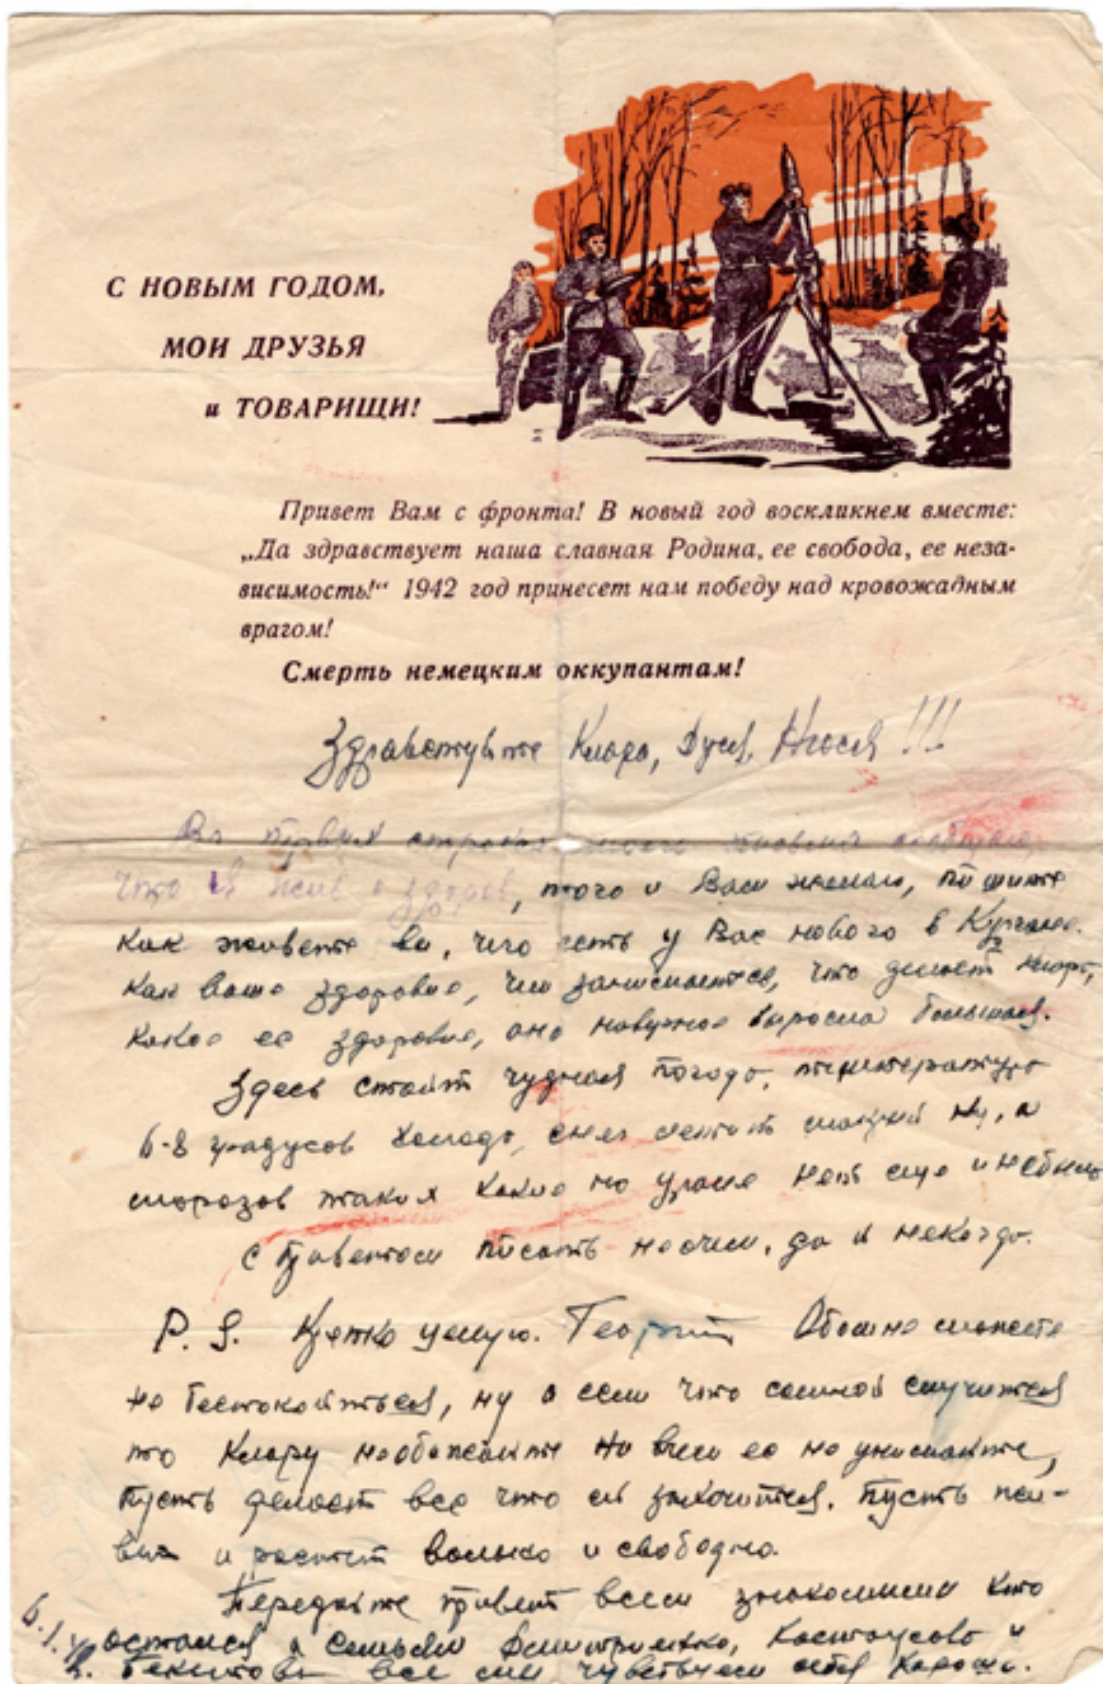 С НОВЫМ ГОДОМ,
МОИ ДРУЗЬЯ
и ТОВАРИЩИ!
Привет Вам с фронта! В новый год воскликнем вместе:
„Да здравствует наша славная Родина, ее свобода, ее неза-
висимость!“ 1942 год принесет нам победу над кровожадным
врагом!
Смерть немецким оккупантам!
Здравствуйте Клара, Дуся, Нюся!!!
Во первых строках письма сообщаю,
что я жив и здоров, того и Вам желаю, пишите
как живете вы, чего есть у Вас нового в Кургане.
Как ваше здоровье, чем занимаетесь, что делает Клара,
какое ее здоровье, она наверное выросла большая.
Здесь стоит чудная погода, температура
6-8 градусов холода, снег, а
морозов таких какие на Урале нет еще и небыло
с приветом писать неочем, да и некогда.
P. S. Крепко целую. Георгий Обомне можете
не беспокоиться, ну а если что самной случится
то Клару необижайте ни вчем ее не унижайте,
пусть делает все что ей захочится. Пусть
и растет вольно и свободно.
Передайте привет всем знакомым кто
остался и семьям Дмитриенко, Костоусова и
все мы чувствуем себя хорошо.